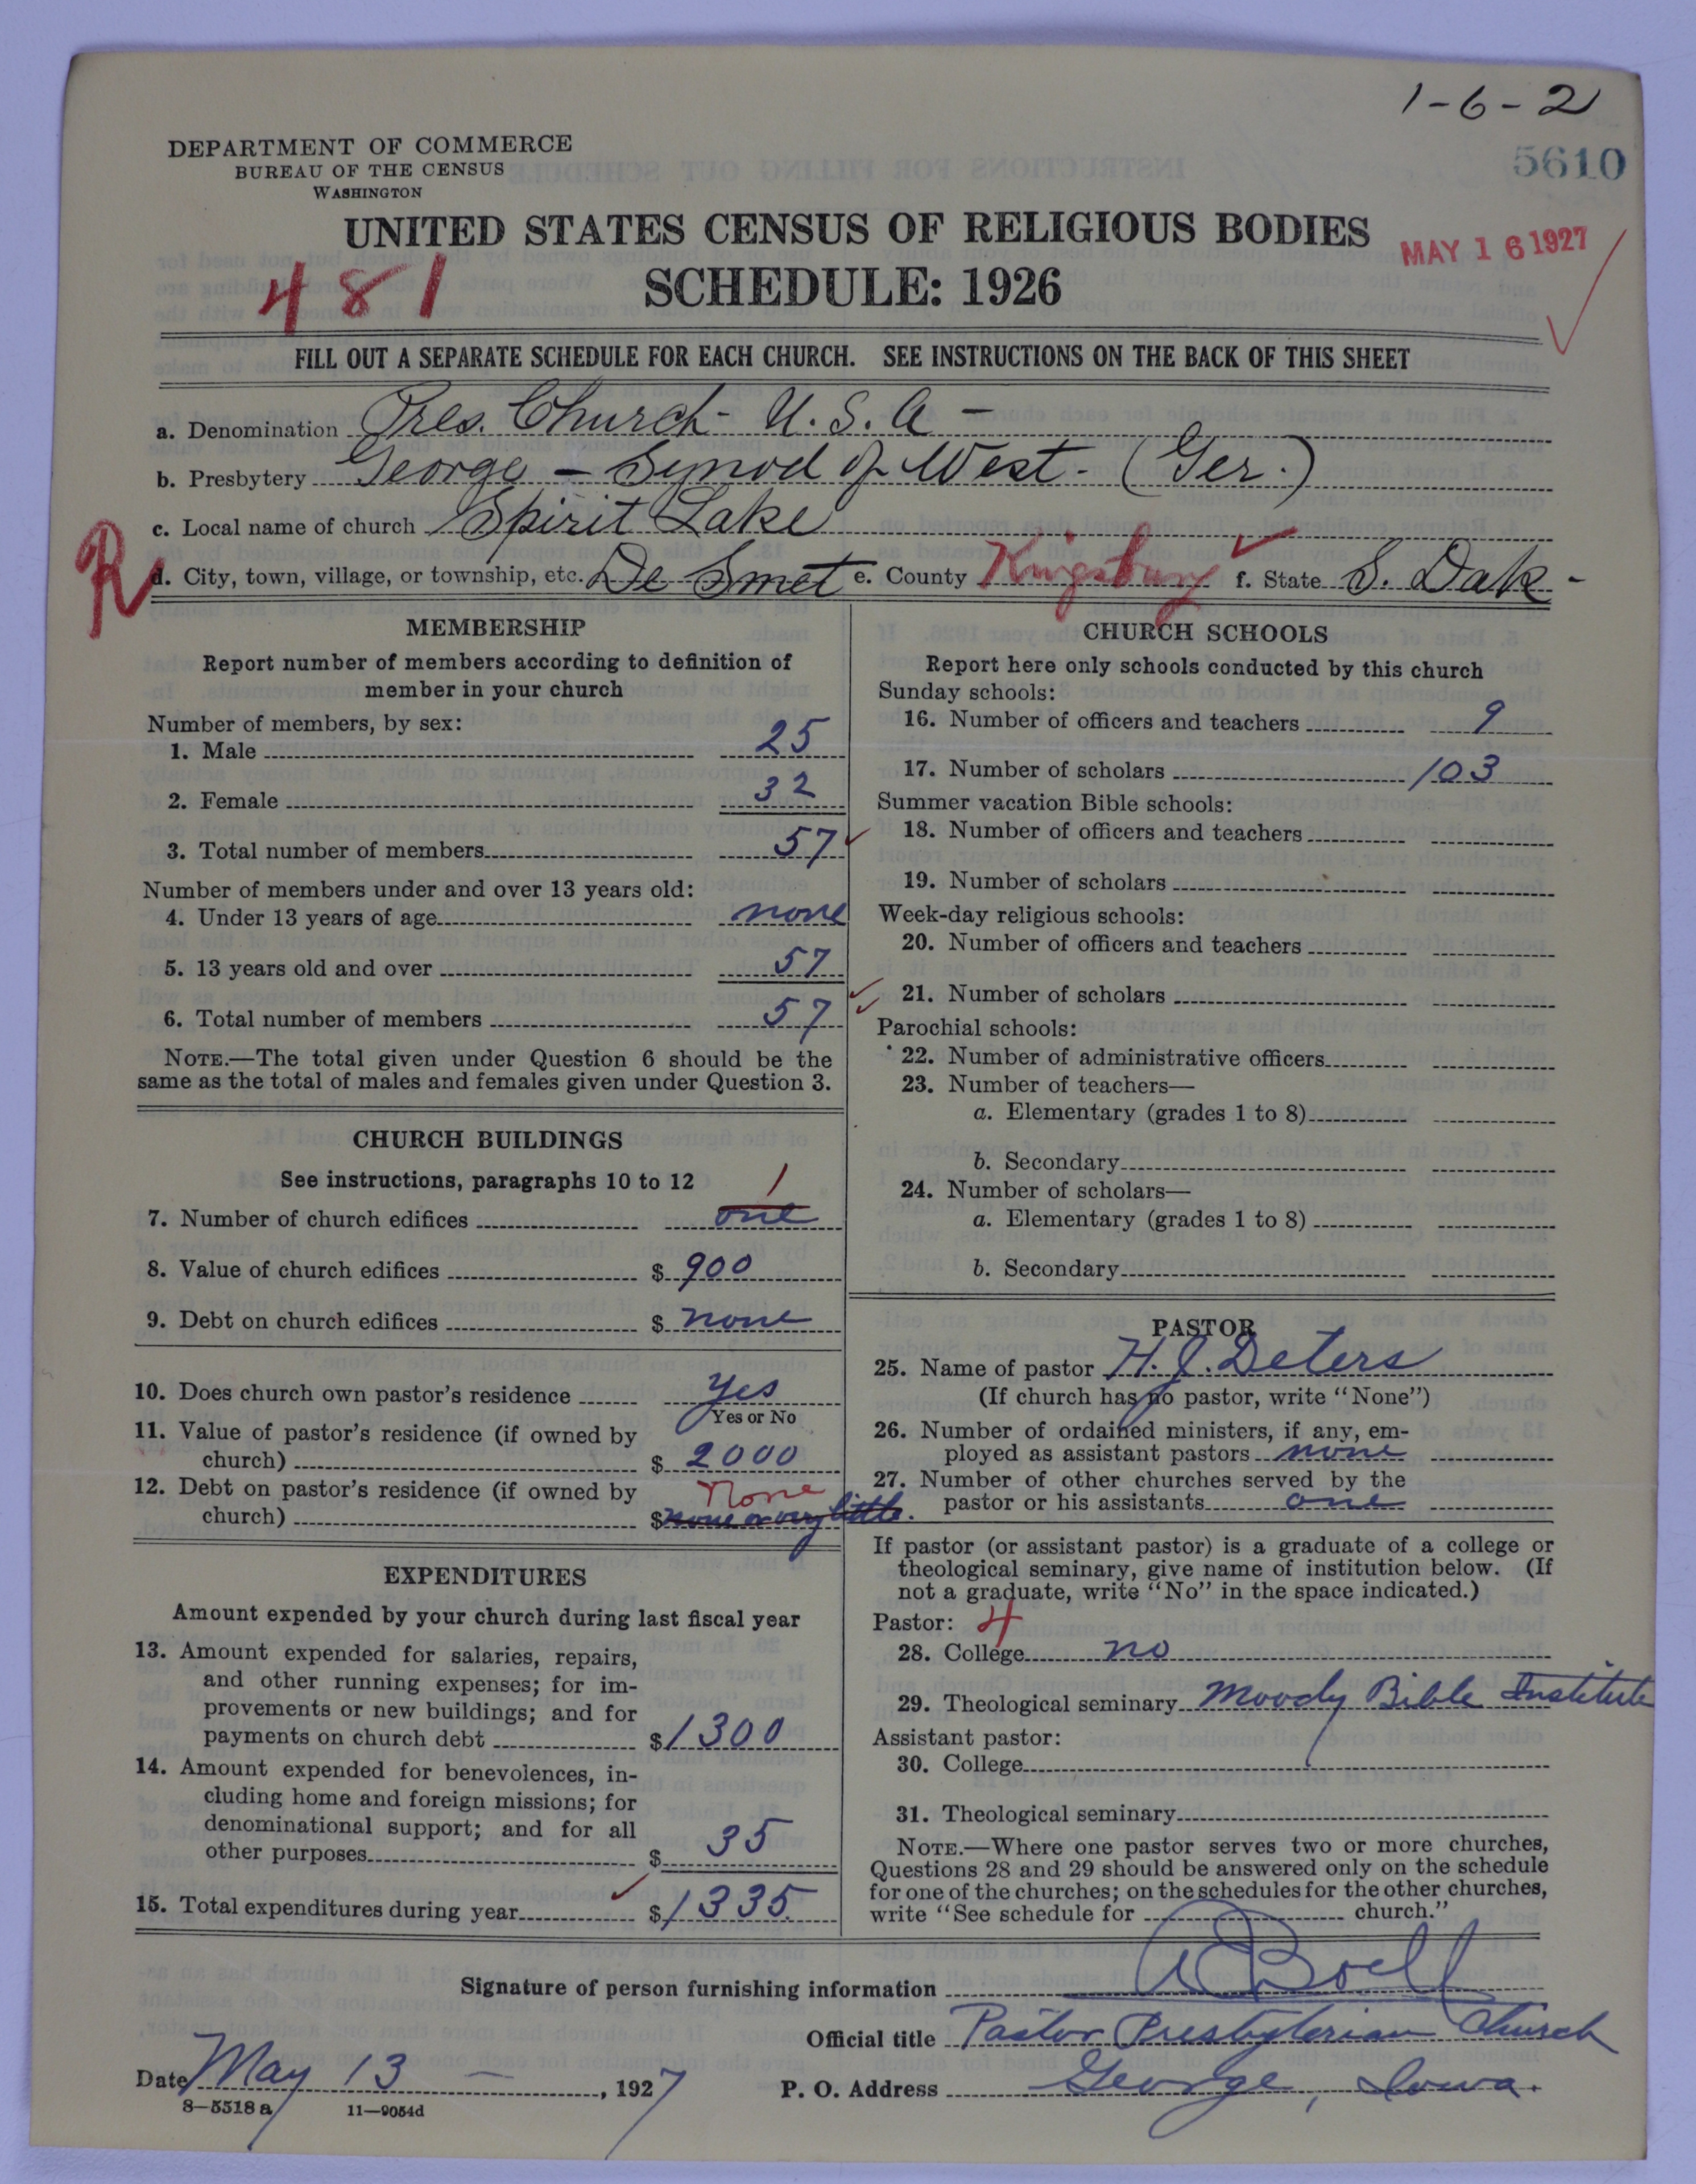 1-6-2
5610
DEPARTMENT OF COMMERCE
BUREAU OF THE CENSUS
WASHINGTON
UNITED STATES CENSUS OF RELIGIOUS BODIES
MAY 16 1927
481
SCHEDULE: 1926
FILL OUT A SEPARATE SCHEDULE FOR EACH CHURCH. SEE INSTRUCTIONS ON THE BACK OF THIS SHEET
a. Denomination Pres. Church - U. S. A -
b. Presbytery George - Synod of West - (Ger.)
c. Local name of church Spirit Lake
R
d. City, town, village, or township, etc. De Smet e. County Kingsbury f. State S. Dak -
MEMBERSHIP
Report number of members according to definition of
member in your church
Number of members, by sex:
1. Male 25
2. Female 32
3. Total number of members 57
Number of members under and over 13 years old:
4. Under 13 years of age none
5. 13 years old and over 57
6. Total number of members 57
NOTE.—The total given under Question 6 should be the
same as the total of males and females given under Question 3.
CHURCH BUILDINGS
See instructions, paragraphs 10 to 12
1
7. Number of church edifices one
8. Value of church edifices $ 900
9. Debt on church edifices $ none
10. Does church own pastor's residence yes
Yes or No
11. Value of pastor's residence (if owned by
church) $ 2000
12. Debt on pastor's residence (if owned by None
church) $ none or very little.
EXPENDITURES
Amount expended by your church during last fiscal year
13. Amount expended for salaries, repairs,
and other running expenses; for im-
provements or new buildings; and for
payments on church debt $1300
14. Amount expended for benevolences, in-
cluding home and foreign missions; for
denominational support; and for all
other purposes $ 35
15. Total expenditures during year $1335.
CHURCH SCHOOLS
Report here only schools conducted by this church
Sunday schools:
16. Number of officers and teachers 9
17. Number of scholars 103
Summer vacation Bible schools:
18. Number of officers and teachers
19. Number of scholars
Week-day religious schools:
20. Number of officers and teachers
21. Number of scholars
Parochial schools:
22. Number of administrative officers
23. Number of teachers—
a. Elementary (grades 1 to 8)
b. Secondary
24. Number of scholars—
a. Elementary (grades 1 to 8)
b. Secondary
PASTOR
25. Name of pastor H. J. Deters
(If church has no pastor, write "None")
26. Number of ordained ministers, if any, em-
ployed as assistant pastors none
27. Number of other churches served by the
pastor or his assistants one
If pastor (or assistant pastor) is a graduate of a college or
theological seminary, give name of institution below. (If
not a graduate, write "No" in the space indicated.)
Pastor: 4
28. College no
29. Theological seminary Moody Bible Institute
Assistant pastor:
30. College
31. Theological seminary
NOTE.—Where one pastor serves two or more churches,
Questions 28 and 29 should be answered only on the schedule
for one of the churches; on the schedules for the other churches,
write "See schedule for church."
Signature of person furnishing information A Boell
Official title Pastor Presbyterian Church
Date May 13 - , 1927
P. O. Address George, Iowa.
8-5518 a 11-9054d